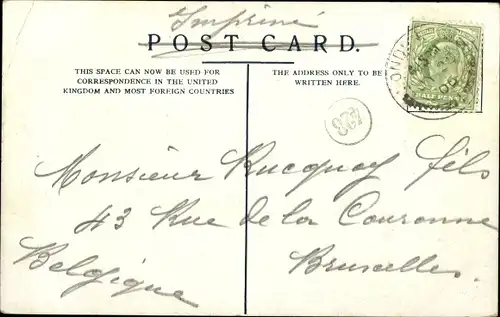 Imprimé
POST CARD.
THIS SPACE CAN NOW BE USED FOR
CORRESPONDENCE IN THE UNITED
KINGDOM AND MOST FOREIGN COUNTRIES
THE ADDRESS ONLY TO BE
WRITTEN HERE.
LONDON
HALF PENNY
Monsieur Rucquoy fils
43 Rue de la Couronne
Belgique Bruxelles.